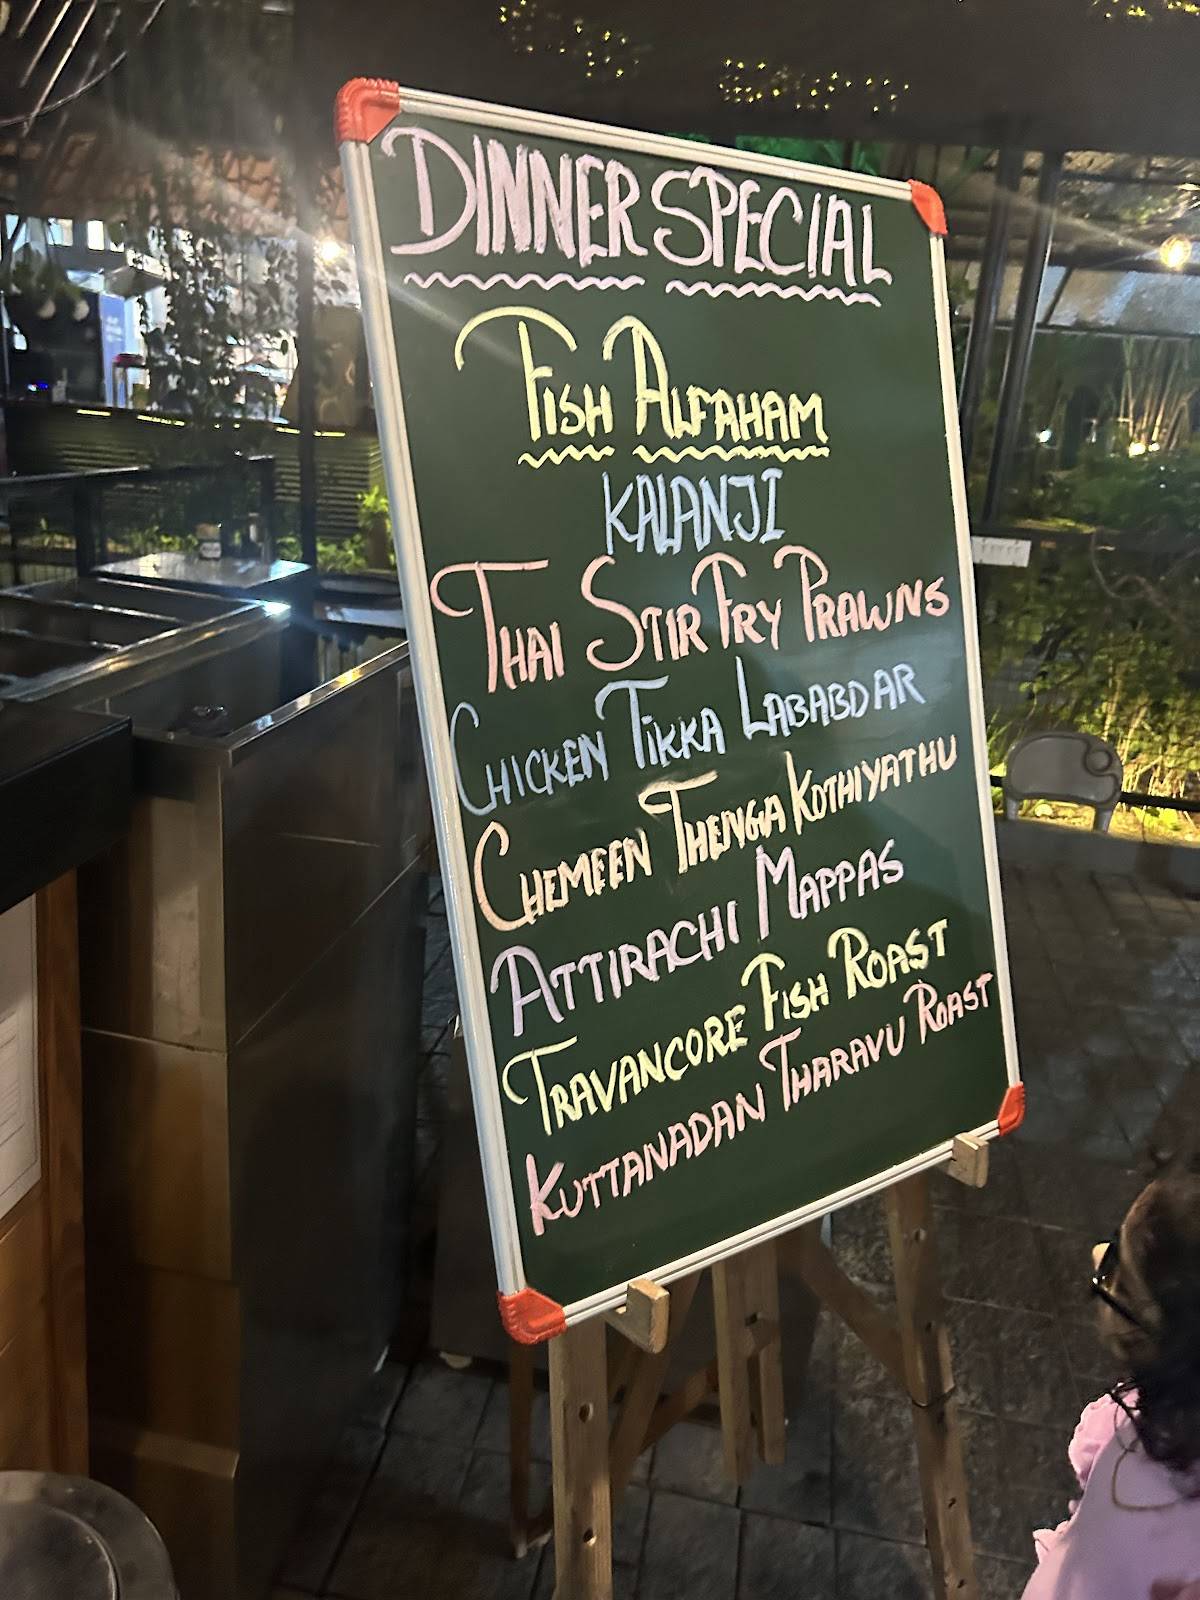 DINNER SPECIAL
FISH ALFAHAM
KALANJI
THAI STIR FRY PRAWNS
CHICKEN TIKKA LABABDAR
CHEMEEN THENGA KOTHIYATHU
ATTIRACHI MAPPAS
TRAVANCORE FISH ROAST
KUTTANADAN THARAVU ROAST